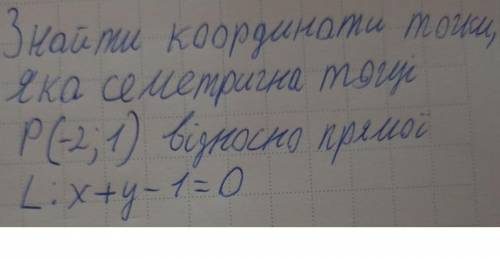 Знайти координати точки,
яка семетрична точці
P(-2; 1) відносно прямої
L: x+y-1=0